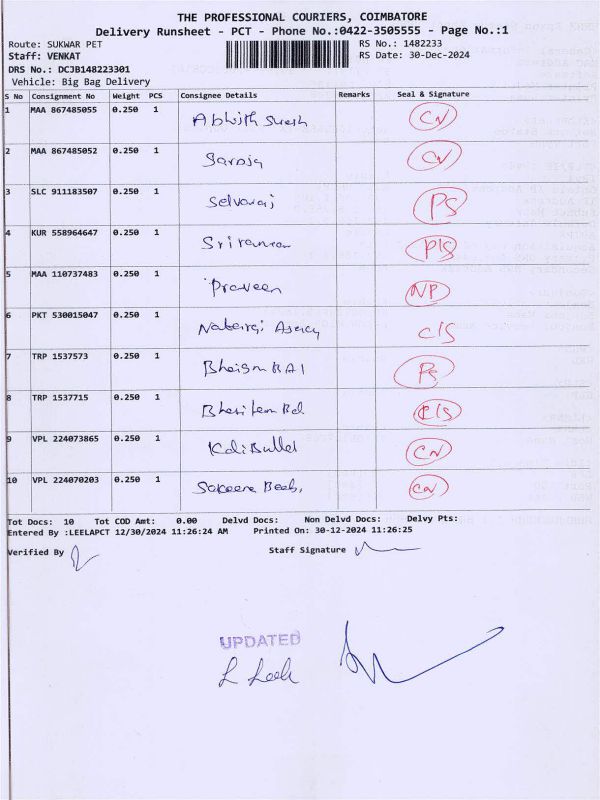 THE PROFESSIONAL COURIERS, COIMBATORE
Delivery Runsheet - PCT - Phone No.:0422-3505555 - Page No.:1
Route: SUKWAR PET RS No.: 1482233
Staff: VENKAT RS Date: 30-Dec-2024
DRS No.: DCJB148223301
Vehicle: Big Bag Delivery
S No Consignment No Weight PCS Consignee Details Remarks Seal & Signature
1 MAA 867485055 0.250 1 CN
2 MAA 867485052 0.250 1 Saroja CN
3 SLC 911183507 0.250 1 Selvaraj PS
4 KUR 558964647 0.250 1 P/S
5 MAA 110737483 0.250 1 Praveen NP
6 PKT 530015047 0.250 1 C/S
7 TRP 1537573 0.250 1 PS
8 TRP 1537715 0.250 1
9 VPL 224073865 0.250 1 CN
10 VPL 224070203 0.250 1 CN
Tot Docs: 10 Tot COD Amt: 0.00 Delvd Docs: Non Delvd Docs: Delvy Pts:
Entered By :LEELAPCT 12/30/2024 11:26:24 AM Printed On: 30-12-2024 11:26:25
Verified By Staff Signature
UPDATED